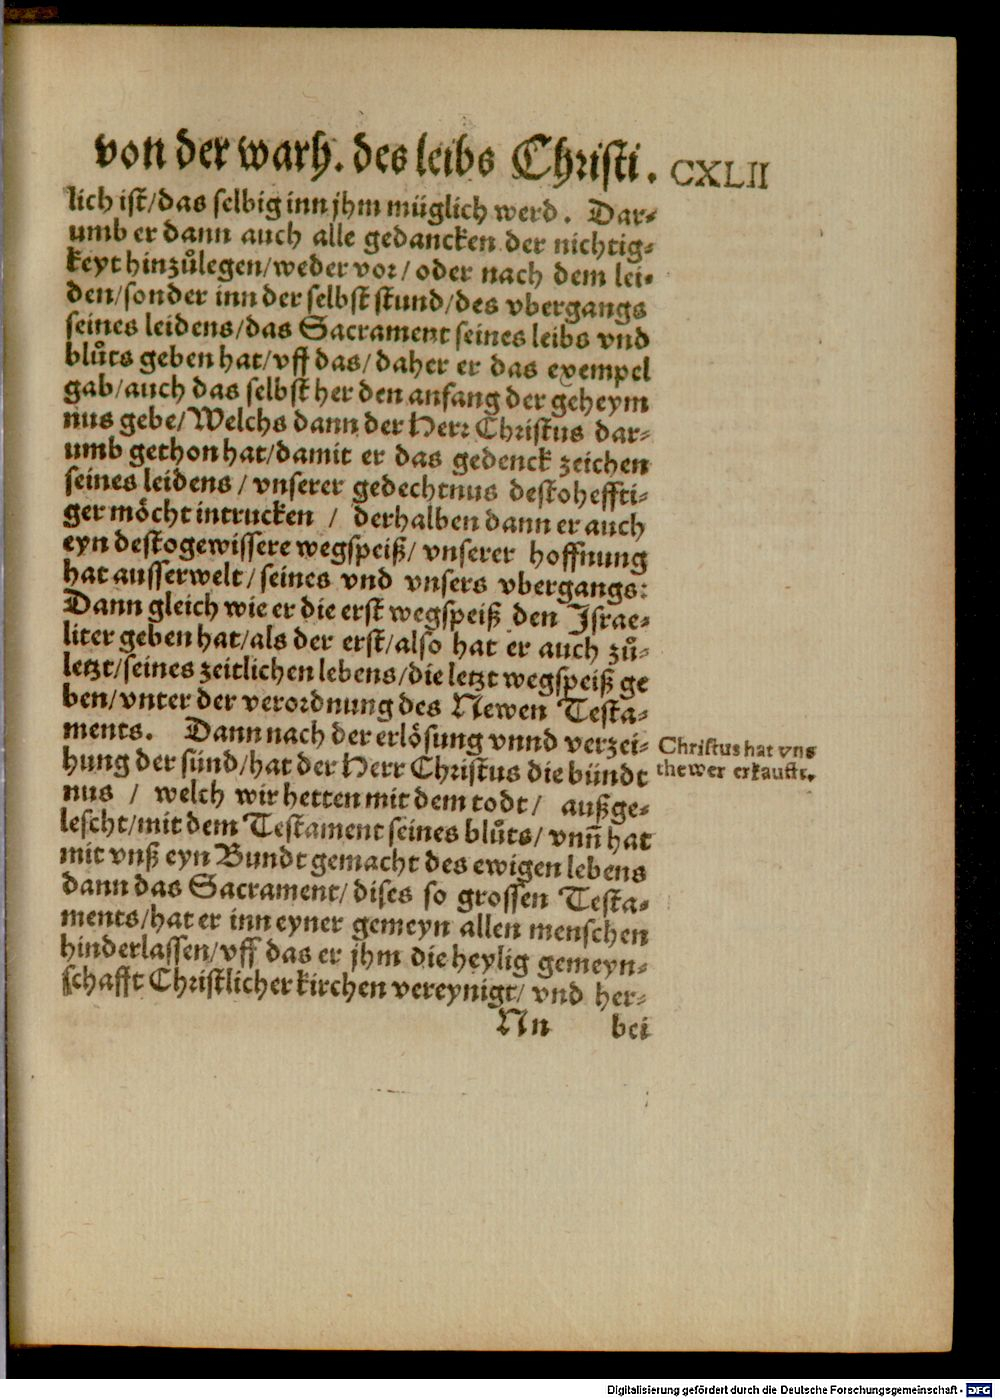 von der warh. des leibs Christi. CXLII
lich ist/das selbig inn jhm müglich werd. Dar⸗
umb er dann auch alle gedancken der nichtig⸗
keyt hinzůlegen/weder vor/oder nach dem lei⸗
den/sonder inn der selbst stund/des vbergangs
seines leidens/das Sacrament seines leibs vnd
blůts geben hat/vff das/daher er das exempel
gab/auch das selbst her den anfang der geheym
nus gebe/Welchs dann der Herr Christus dar⸗
umb gethon hat/damit er das gedenck zeichen
seines leidens/vnserer gedechtnus destoheffti⸗
ger möcht intrucken / derhalben dann er auch
eyn destogewissere wegspeiß/vnserer hoffnung
hat ausserwelt/seines vnd vnsers vbergangs:
Dann gleich wie er die erst wegspeiß den Israe⸗
liter geben hat/als der erst/also hat er auch zů⸗
letzt/seines zeitlichen lebens/die letzt wegspeiß ge
ben/vnter der verordnung des Newen Testa⸗
ments. Dann nach der erlösung vnnd verzei⸗
hung der sünd/hat der Herr Christus die bündt
nus / welch wir hetten mit dem todt/ außge⸗
lescht/mit dem Testament seines blůts/vnn̄ hat
mit vnß eyn Bundt gemacht des ewigen lebens
dann das Sacrament/dises so grossen Testa⸗
ments/hat er inn eyner gemeyn allen menschen
hinderlassen/vff das er jhm die heylig gemeyn⸗
schafft Christlicher kirchen vereynigt/vnd her⸗
Nn bei
Christus hat vns
thewer erkaufft.
Digitalisierung gefördert durch die Deutsche Forschungsgemeinschaft - DFG